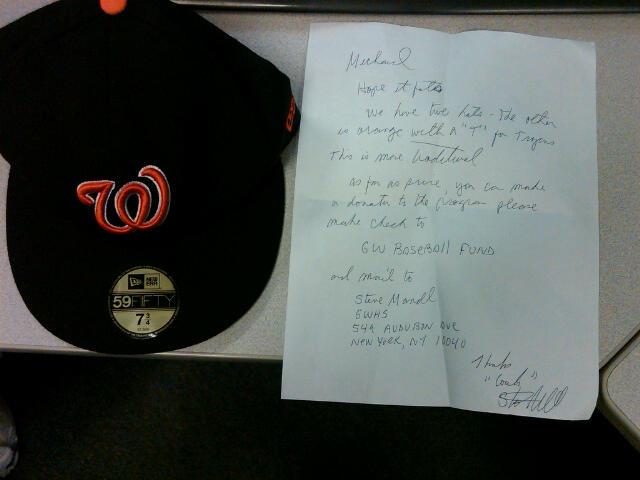 W
NEW ERA
59FIFTY
7 3/4
Michael
Hope it fits
We have two hats - The other
is orange with a "T" for Trojans
This is more traditional
as far as price, you can make
a donation to the program please
make check to
GW BASEBALL FUND
and mail to
Steve Mandl
GWHS
549 AUDUBON AVE
NEW YORK, NY 10040
Thanks
"Coach"